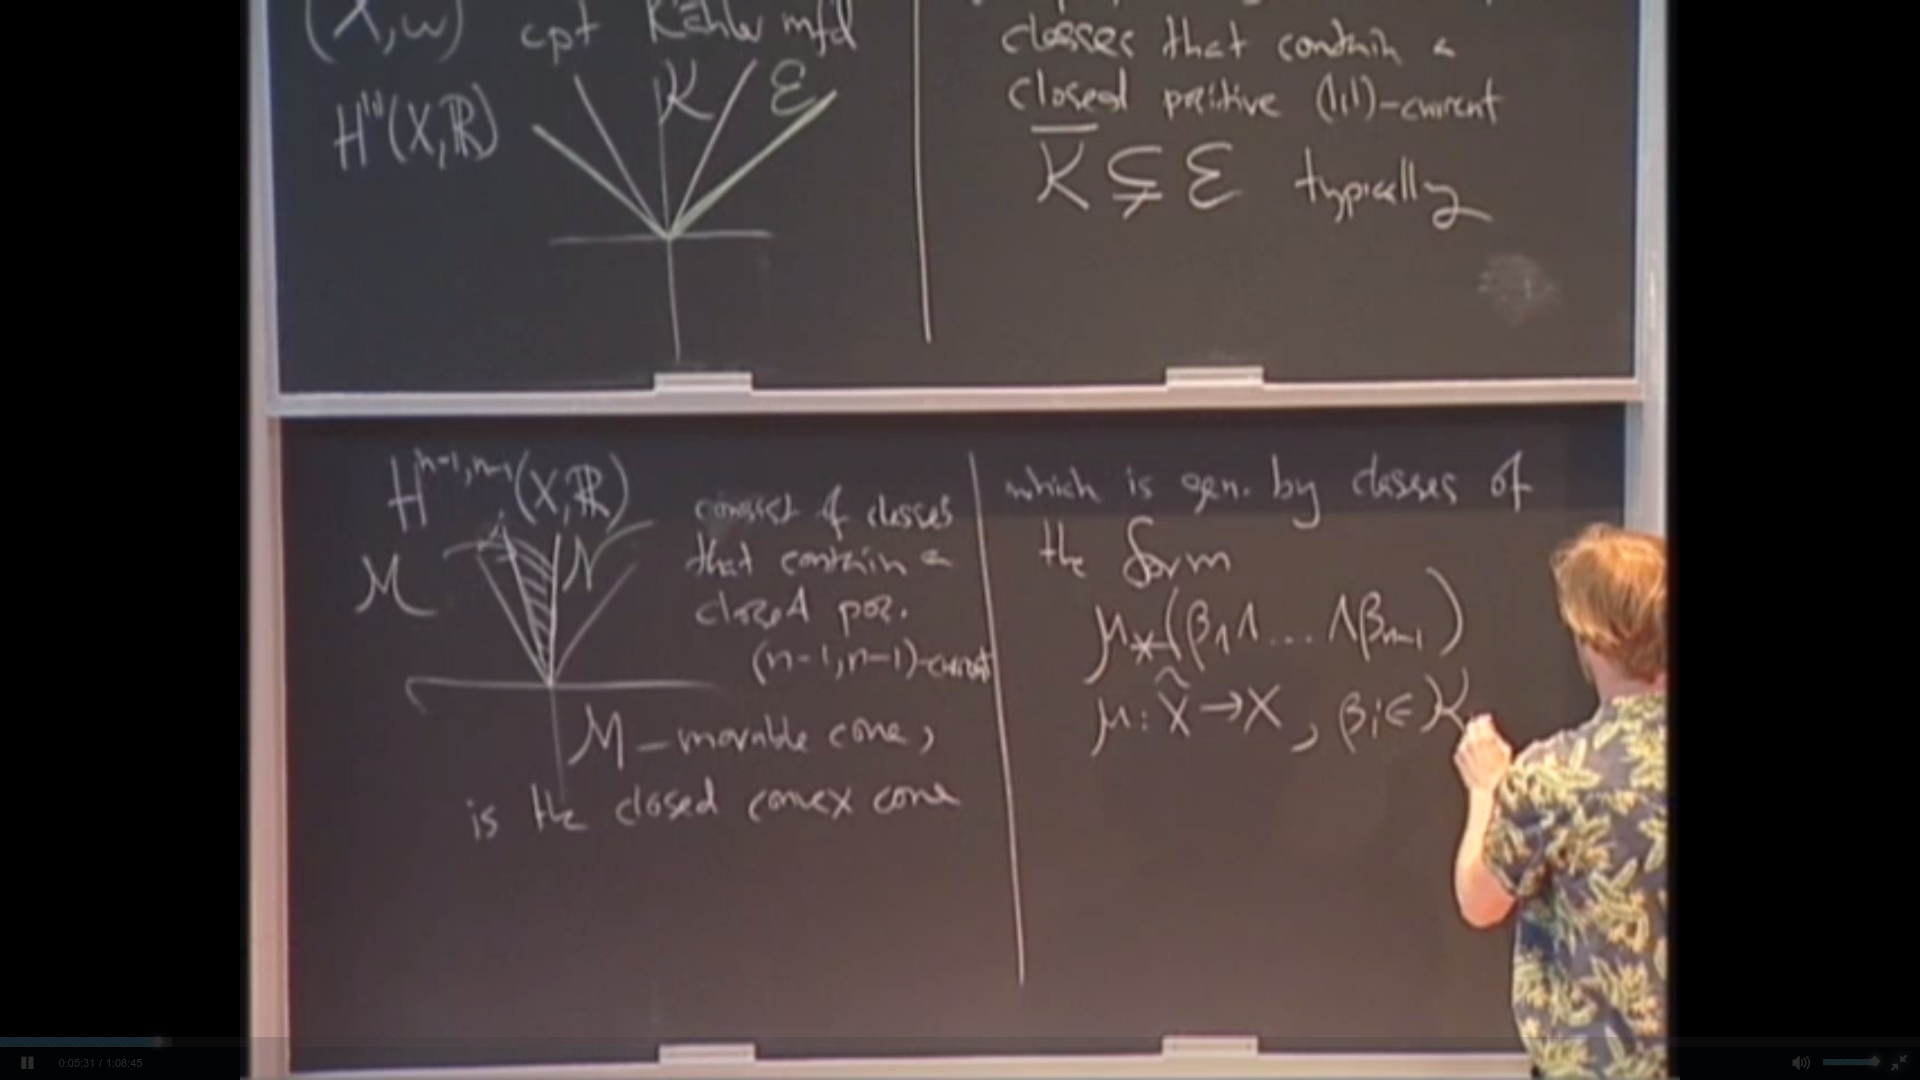 (X,ω) cpt Kähler mfd
H^{1,1}(X,ℝ)
K
ℰ
classes that contain a
closed positive (1,1)-current
K̅ ⊊ ℰ typically
H^{n-1,n-1}(X,ℝ)
M
N
consist of classes
that contain a
closed pos.
(n-1,n-1)-current
M – movable cone,
is the closed convex cone
which is gen. by classes of
the form
μ_*(β_1∧...∧β_{n-1})
μ: X̃→X, β_i∈K
0:05:31 / 1:08:45